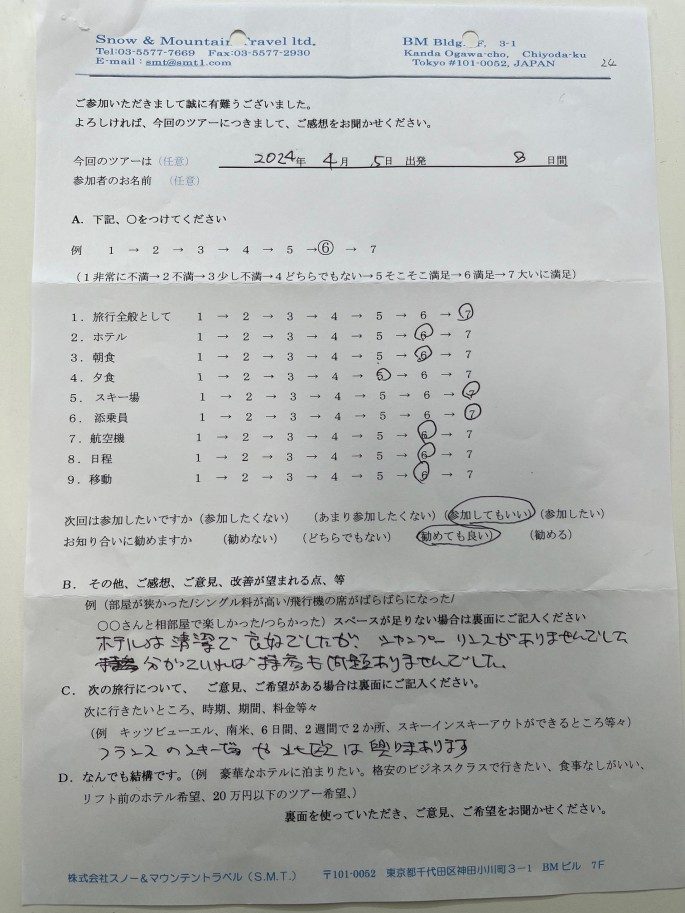 Snow & Mountain Travel ltd. BM Bldg. F, 3-1
Tel:03-5577-7669 Fax:03-5577-2930 Kanda Ogawa-cho, Chiyoda-ku
E-mail : smt@smt1.com Tokyo #101-0052, JAPAN
24
ご参加いただきまして誠に有難うございました。
よろしければ、今回のツアーにつきまして、ご感想をお聞かせください。
今回のツアーは (任意) 2024年 4月 5日 出発 8 日間
参加者のお名前 (任意)
A. 下記、○をつけてください
例 1 → 2 → 3 → 4 → 5 →⑥ → 7
(1非常に不満→2不満→3少し不満→4どちらでもない→5そこそこ満足→6満足→7大いに満足)
1. 旅行全般として 1 → 2 → 3 → 4 → 5 → 6 → 7
2. ホテル 1 → 2 → 3 → 4 → 5 → 6 → 7
3. 朝食 1 → 2 → 3 → 4 → 5 → 6 → 7
4. 夕食 1 → 2 → 3 → 4 → 5 → 6 → 7
5. スキー場 1 → 2 → 3 → 4 → 5 → 6 → 7
6. 添乗員 1 → 2 → 3 → 4 → 5 → 6 → 7
7. 航空機 1 → 2 → 3 → 4 → 5 → 6 → 7
8. 日程 1 → 2 → 3 → 4 → 5 → 6 → 7
9. 移動 1 → 2 → 3 → 4 → 5 → 6 → 7
次回は参加したいですか (参加したくない) (あまり参加したくない) (参加してもいい) (参加したい)
お知り合いに勧めますか (勧めない) (どちらでもない) (勧めても良い) (勧める)
B. その他、ご感想、ご意見、改善が望まれる点、等
例 (部屋が狭かった/シングル料が高い/飛行機の席がばらばらになった/
○○さんと相部屋で楽しかった/つらかった) スペースが足りない場合は裏面にご記入ください
ホテルは清潔で良好でしたが、シャンプー リンスがありませんでした
分かっていれば持参も問題ありませんでした。
C. 次の旅行について、 ご意見、ご希望がある場合は裏面にご記入ください。
次に行きたいところ、時期、期間、料金等々
(例 キッツビューエル、南米、6日間、2週間で2か所、スキーインスキーアウトができるところ等々)
フランスのスキー場や北欧は興味あります
D. なんでも結構です。(例 豪華なホテルに泊まりたい。格安のビジネスクラスで行きたい、食事なしがいい、
リフト前のホテル希望、20万円以下のツアー希望、)
裏面を使っていただき、ご意見、ご希望をお聞かせください。
株式会社スノー&マウンテントラベル (S.M.T.) 〒101-0052 東京都千代田区神田小川町3-1 BMビル 7F